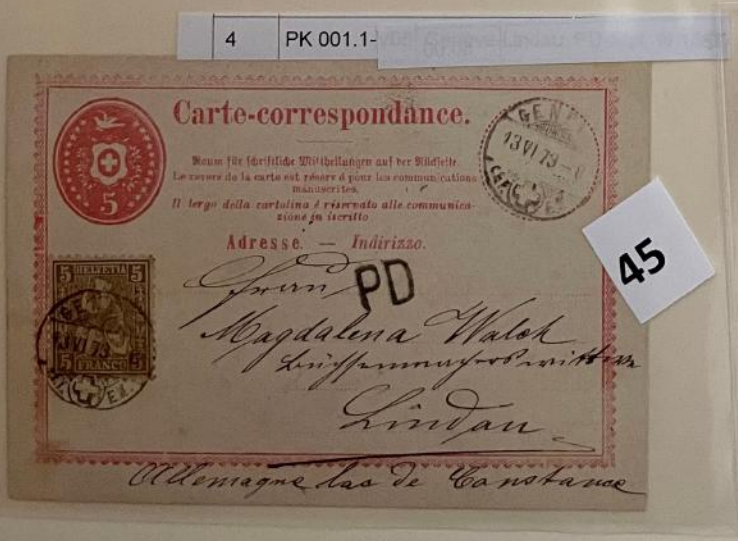 4 PK 001.1-
Carte-correspondance.
Raum für schriftliche Mittheilungen auf der Rückseite.
Le revers de la carte est réservé pour les communications
manuscrites.
Il tergo della cartolina è riservato alle communica-
zione in iscritto
Adresse. — Indirizzo.
5
GENÈ
13 VI 73
45
5 HELVETIA 5
5 FRANCO 5
GEN
13 VI 73
PD
Frau
Magdalena Walch
Büchsenmachers wittwe
Lindau
Allemagne lac de Constance